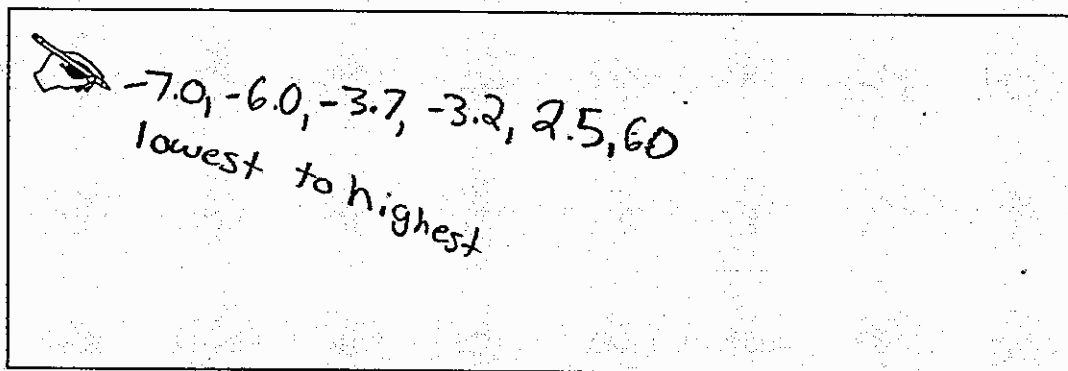 -7.0, -6.0, -3.7, -3.2, 2.5, 60
lowest to highest